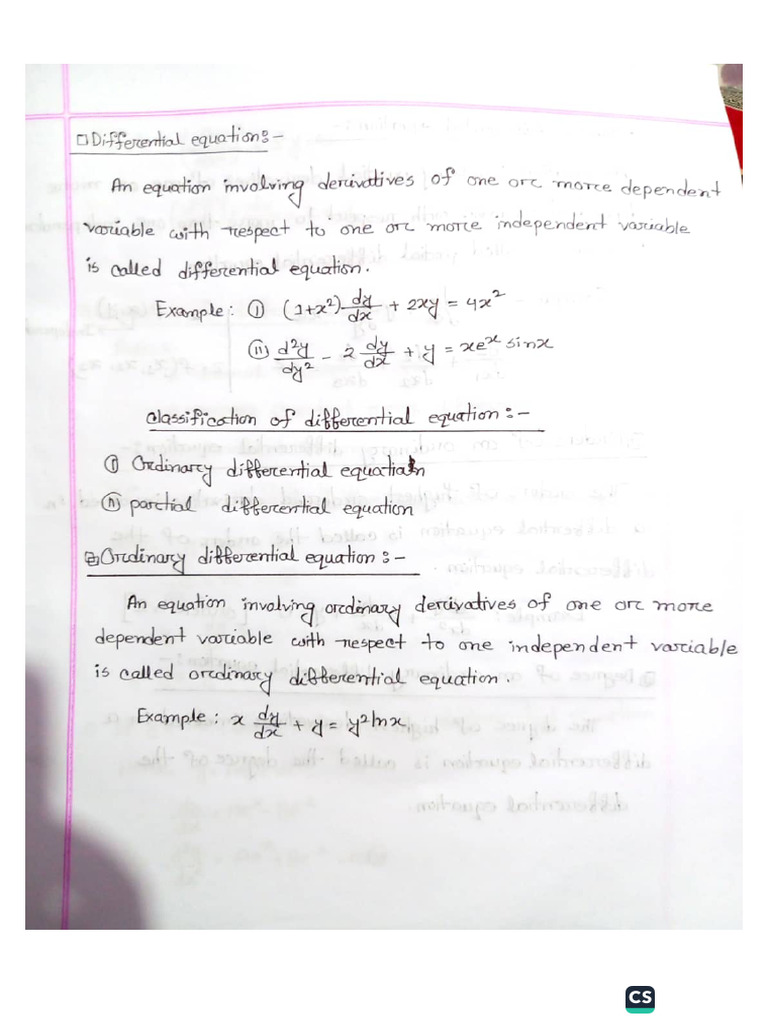 □ Differential equation:-
An equation involving derivatives of one or more dependent
variable with respect to one or more independent variable
is called differential equation.
Example: (i) (1+x²) dy/dx + 2xy = 4x²
(ii) d²y/dy² - 2 dy/dx + y = xeˣ sinx
Classification of differential equation:-
(i) Ordinary differential equation
(ii) partial differential equation
Ordinary differential equation:-
An equation involving ordinary derivatives of one or more
dependent variable with respect to one independent variable
is called ordinary differential equation.
Example: x dy/dx + y = y² ln x
CS